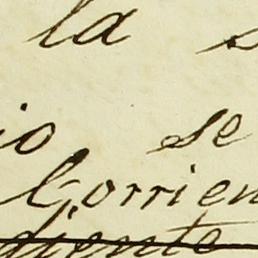 la s
io se
Corrien
diente